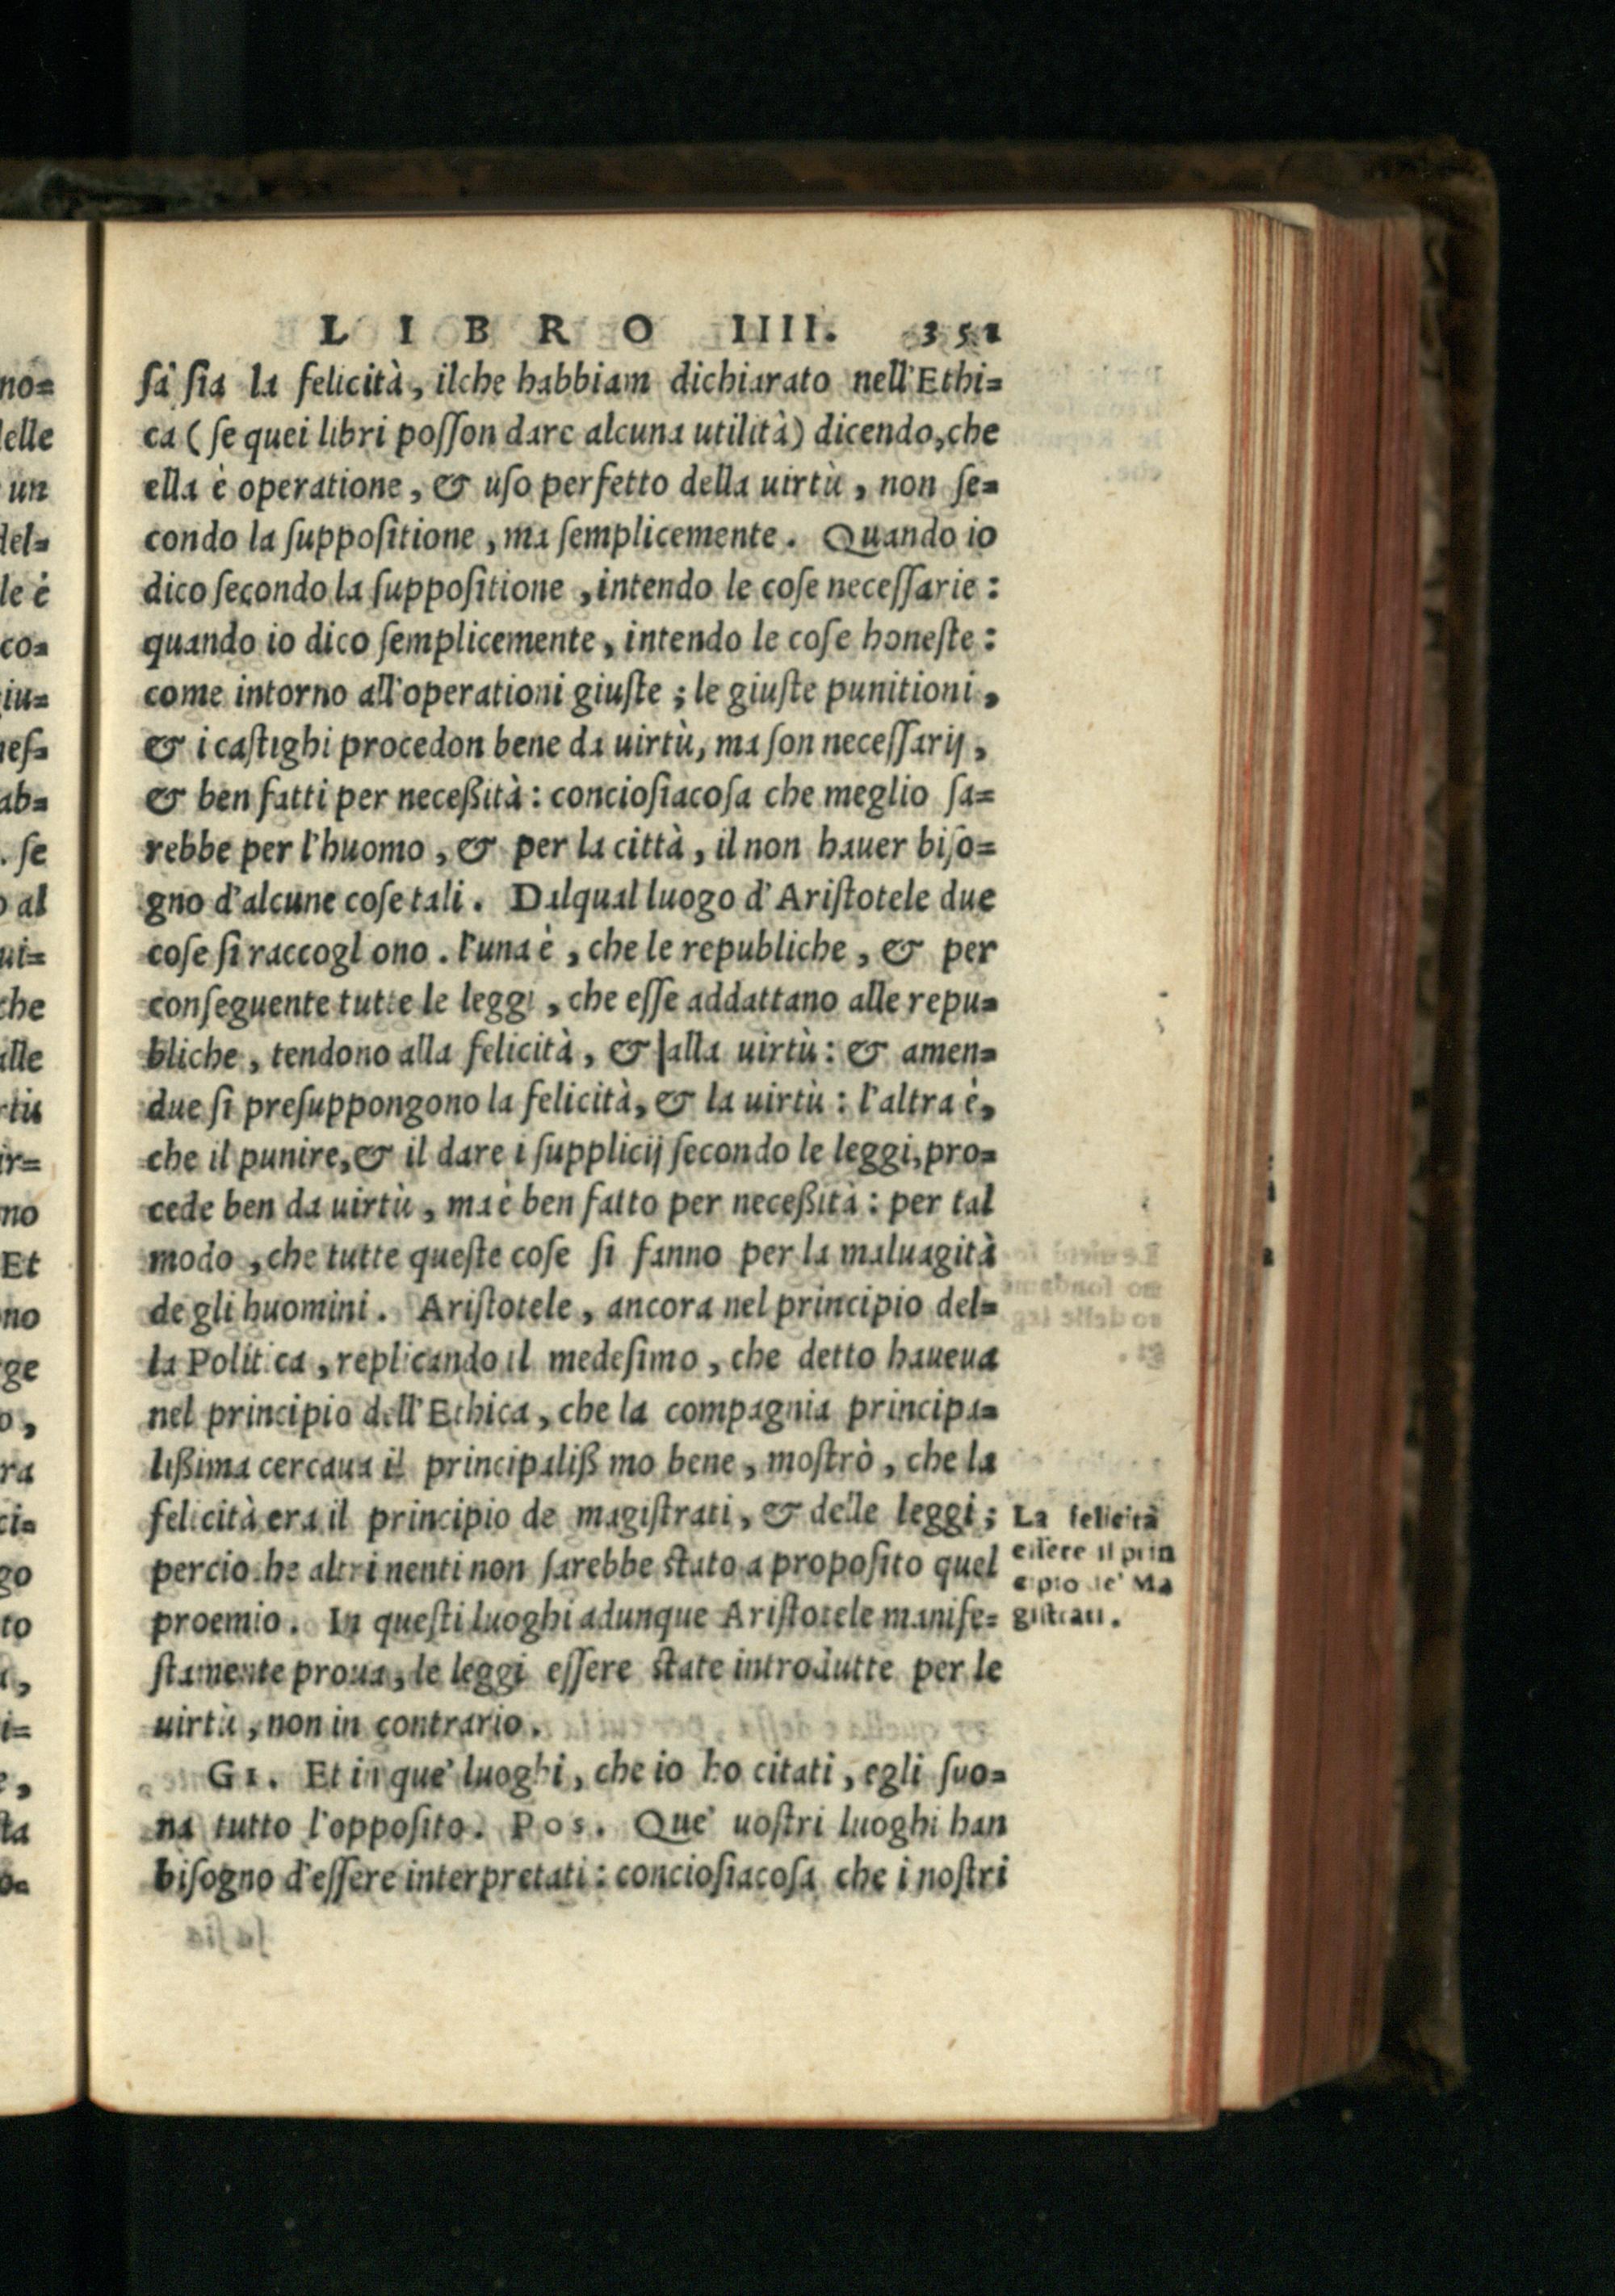 LIBRO IIII. 351
ſa ſia la felicità, ilche habbiam dichiarato nell'Ethi=
ca (ſe quei libri poſſon dare alcuna utilità) dicendo, che
ella è operatione, & uſo perfetto della uirtù, non ſe=
condo la ſuppoſitione, ma ſemplicemente. Quando io
dico ſecondo la ſuppoſitione, intendo le coſe neceſſarie:
quando io dico ſemplicemente, intendo le coſe honeſte:
come intorno all'operationi giuſte; le giuſte punitioni,
& i caſtighi procedon bene da uirtù, ma ſon neceſſarij,
& ben fatti per neceßità: concioſiacoſa che meglio ſa=
rebbe per l'huomo, & per la città, il non hauer biſo=
gno d'alcune coſe tali. Dalqual luogo d'Ariſtotele due
coſe ſi raccogl ono. l'una è, che le republiche, & per
conſeguente tutte le leggi, che eſſe addattano alle repu=
bliche, tendono alla felicità, & alla uirtù: & amen=
due ſi preſuppongono la felicità, & la uirtù: l'altra è,
che il punire, & il dare i ſupplicij ſecondo le leggi, pro=
cede ben da uirtù, ma è ben fatto per neceßità: per tal
modo, che tutte queſte coſe ſi fanno per la maluagità
de gli huomini. Ariſtotele, ancora nel principio del=
la Polit ca, replicando il medeſimo, che detto haueua
nel principio dell'Ethica, che la compagnia principa=
lißima cercaua il principaliß mo bene, moſtrò, che la
felicità era il principio de magiſtrati, & delle leggi;
percioche altrimenti non ſarebbe ſtato a propoſito quel
proemio. In queſti luoghi adunque Ariſtotele manife=
ſtamente proua, le leggi eſſere ſtate introdutte per le
uirtù, non in contrario.
GI. Et in que' luoghi, che io ho citati, egli ſuo=
na tutto l'oppoſito. POS. Que' uoſtri luoghi han
biſogno d'eſſere interpretati: concioſiacoſa che i noſtri
La felicità
eſſere il prin
cipio de' Ma
giſtrati.
no=
delle
un
del=
le è
co=
giu=
neſ=
ab=
. ſe
o al
ui=
che
alle
rtù
ir=
no
Et
no
ge
o,
ra
ci=
go
to
i=
ſta